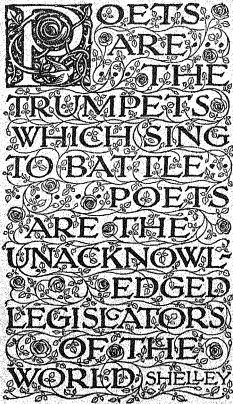 POETS
ARE
THE
TRUMPETS
WHICH SING
TO BATTLE.
POETS
ARE THE
UNACKNOWL-
EDGED
LEGISLATORS
OF THE
WORLD SHELLEY